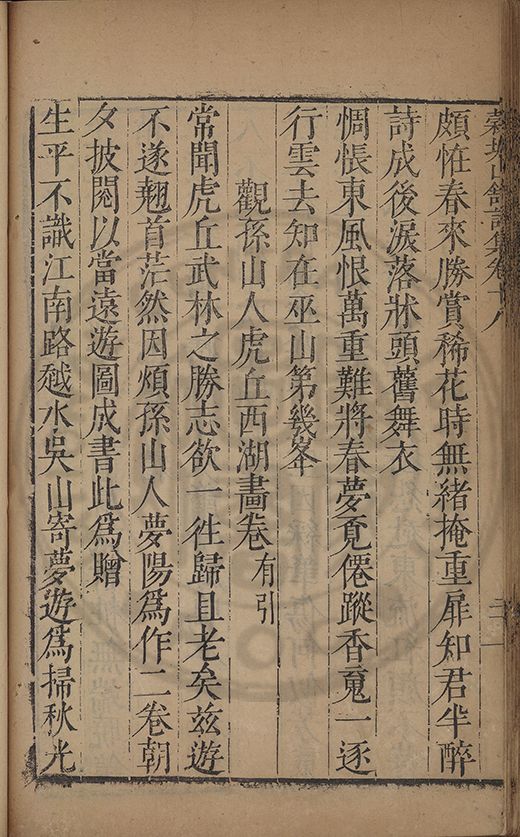 穀城山館詩集卷十八
頗恠春來勝賞稀花時無緒掩重扉知君半醉
詩成後淚落牀頭舊舞衣
惆悵東風恨萬重難將春夢覓僊蹤香䰟一逐
行雲去知在巫山第幾峯
觀孫山人虎丘西湖畫卷有引
常聞虎丘武林之勝志欲一徃歸且老矣兹遊
不遂翹首茫然因煩孫山人夢陽爲作二卷朝
夕披閱以當遠遊圖成書此爲贈
生平不識江南路越水吳山寄夢遊爲掃秋光